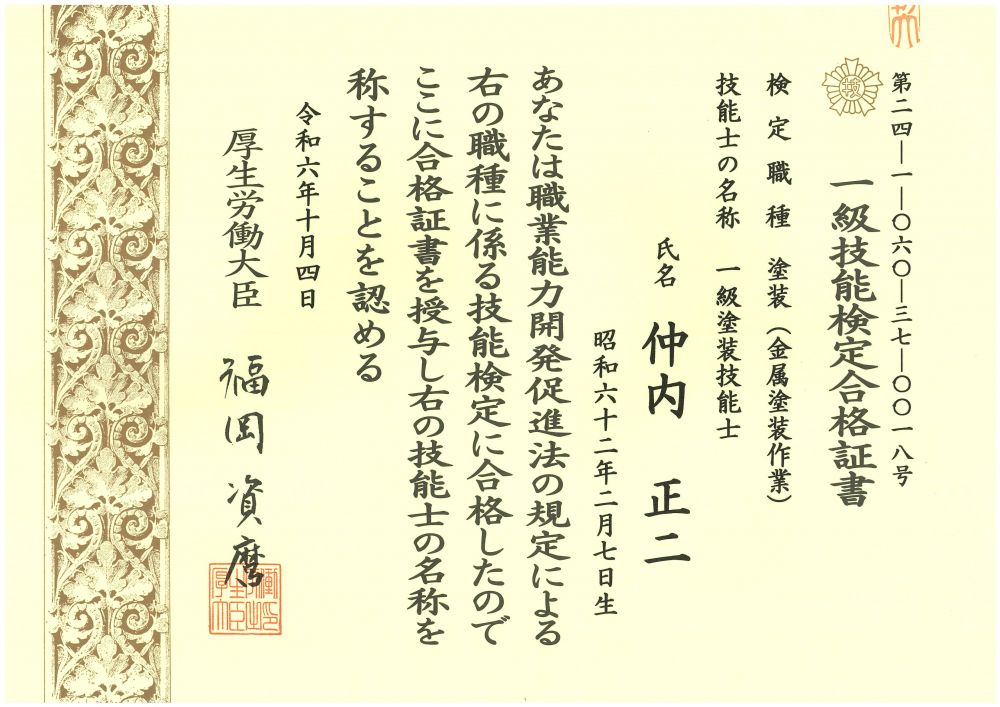 第二四―一―〇六〇―三七―〇〇一八号
一級技能検定合格証書
検定職種 塗装（金属塗装作業）
技能士の名称 一級塗装技能士
氏名 仲内 正二
昭和六十二年二月七日生
あなたは職業能力開発促進法の規定による
右の職種に係る技能検定に合格したので
ここに合格証書を授与し右の技能士の名称を
称することを認める
令和六年十月四日
厚生労働大臣 福岡資麿